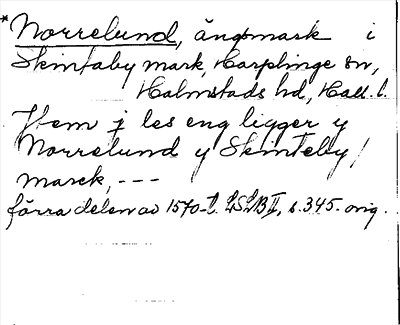 *Norrelund, ängsmark i
Skintaby mark, Harplinge sn,
Halmstads hd, Hall. l.
Jtem j les eng ligger y
Norrelund y Skinteby/
marck, ---
förra delen av 1570-t. LSLB II, s. 345. orig.